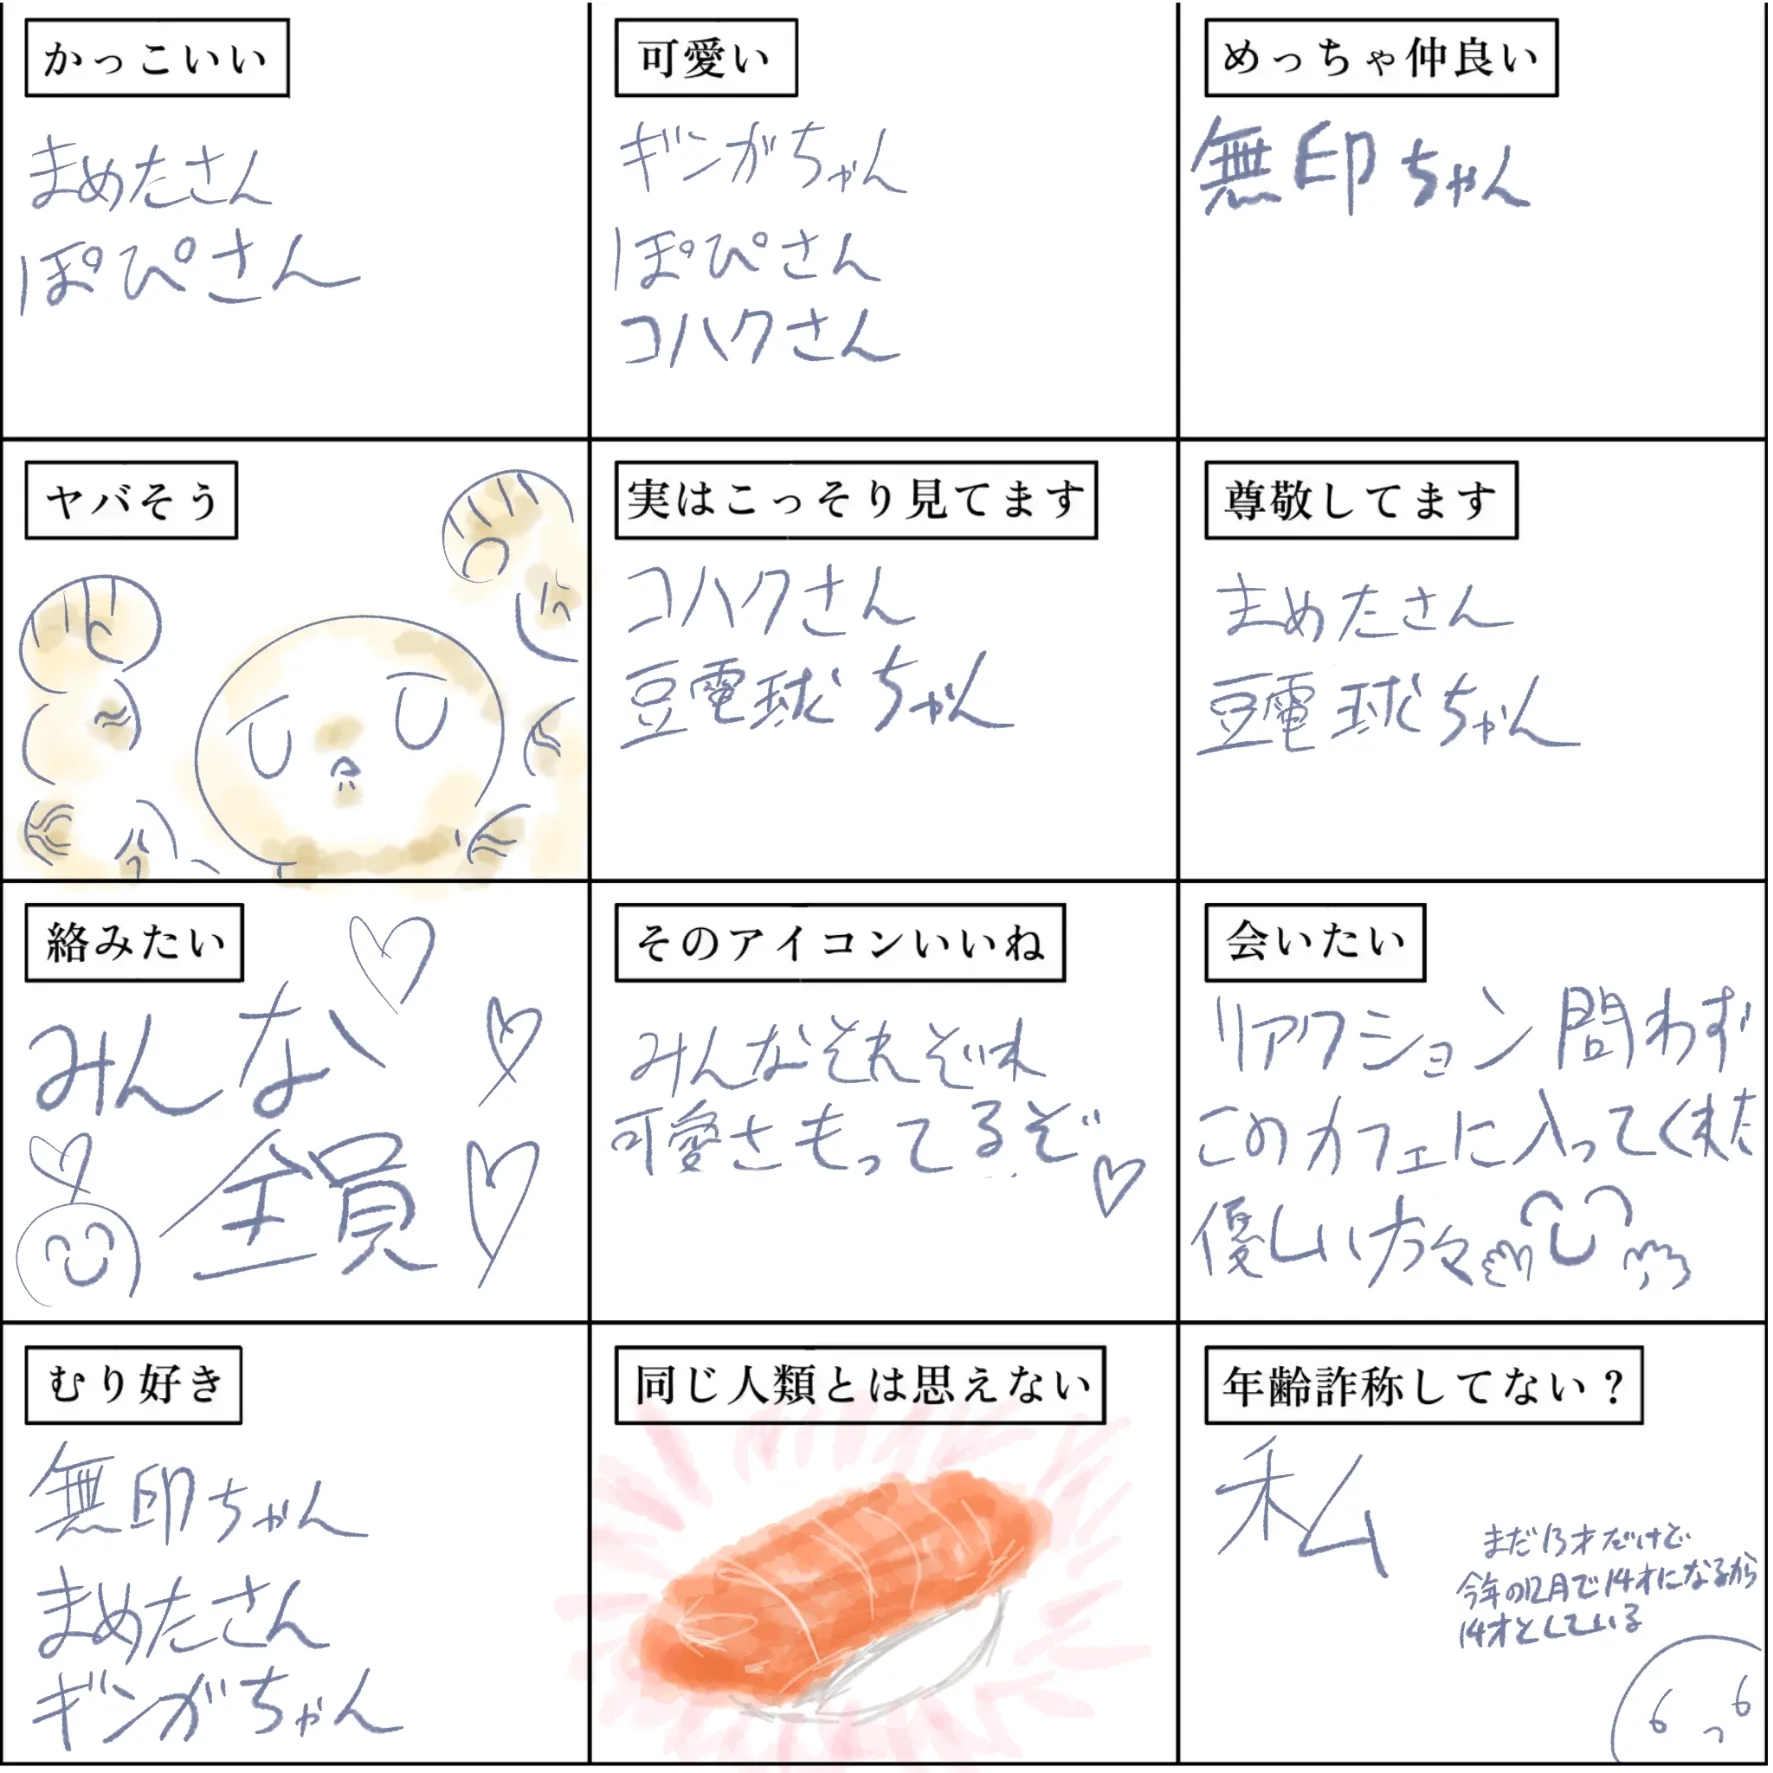 かっこいい
まめたさん
ぽぴさん
可愛い
ギンガちゃん
ぽぴさん
コハクさん
めっちゃ仲良い
無印ちゃん
ヤバそう
実はこっそり見てます
コハクさん
豆電球ちゃん
尊敬してます
まめたさん
豆電球ちゃん
絡みたい
みんな
全員
そのアイコンいいね
みんなそれぞれ
可愛さもってるぞ
会いたい
リアクション問わず
このカフェに入ってくれた
優しい方々
むり好き
無印ちゃん
まめたさん
ギンガちゃん
同じ人類とは思えない
年齢詐称してない？
私
まだ13才だけど
今年の12月で14才になるから
14才としている